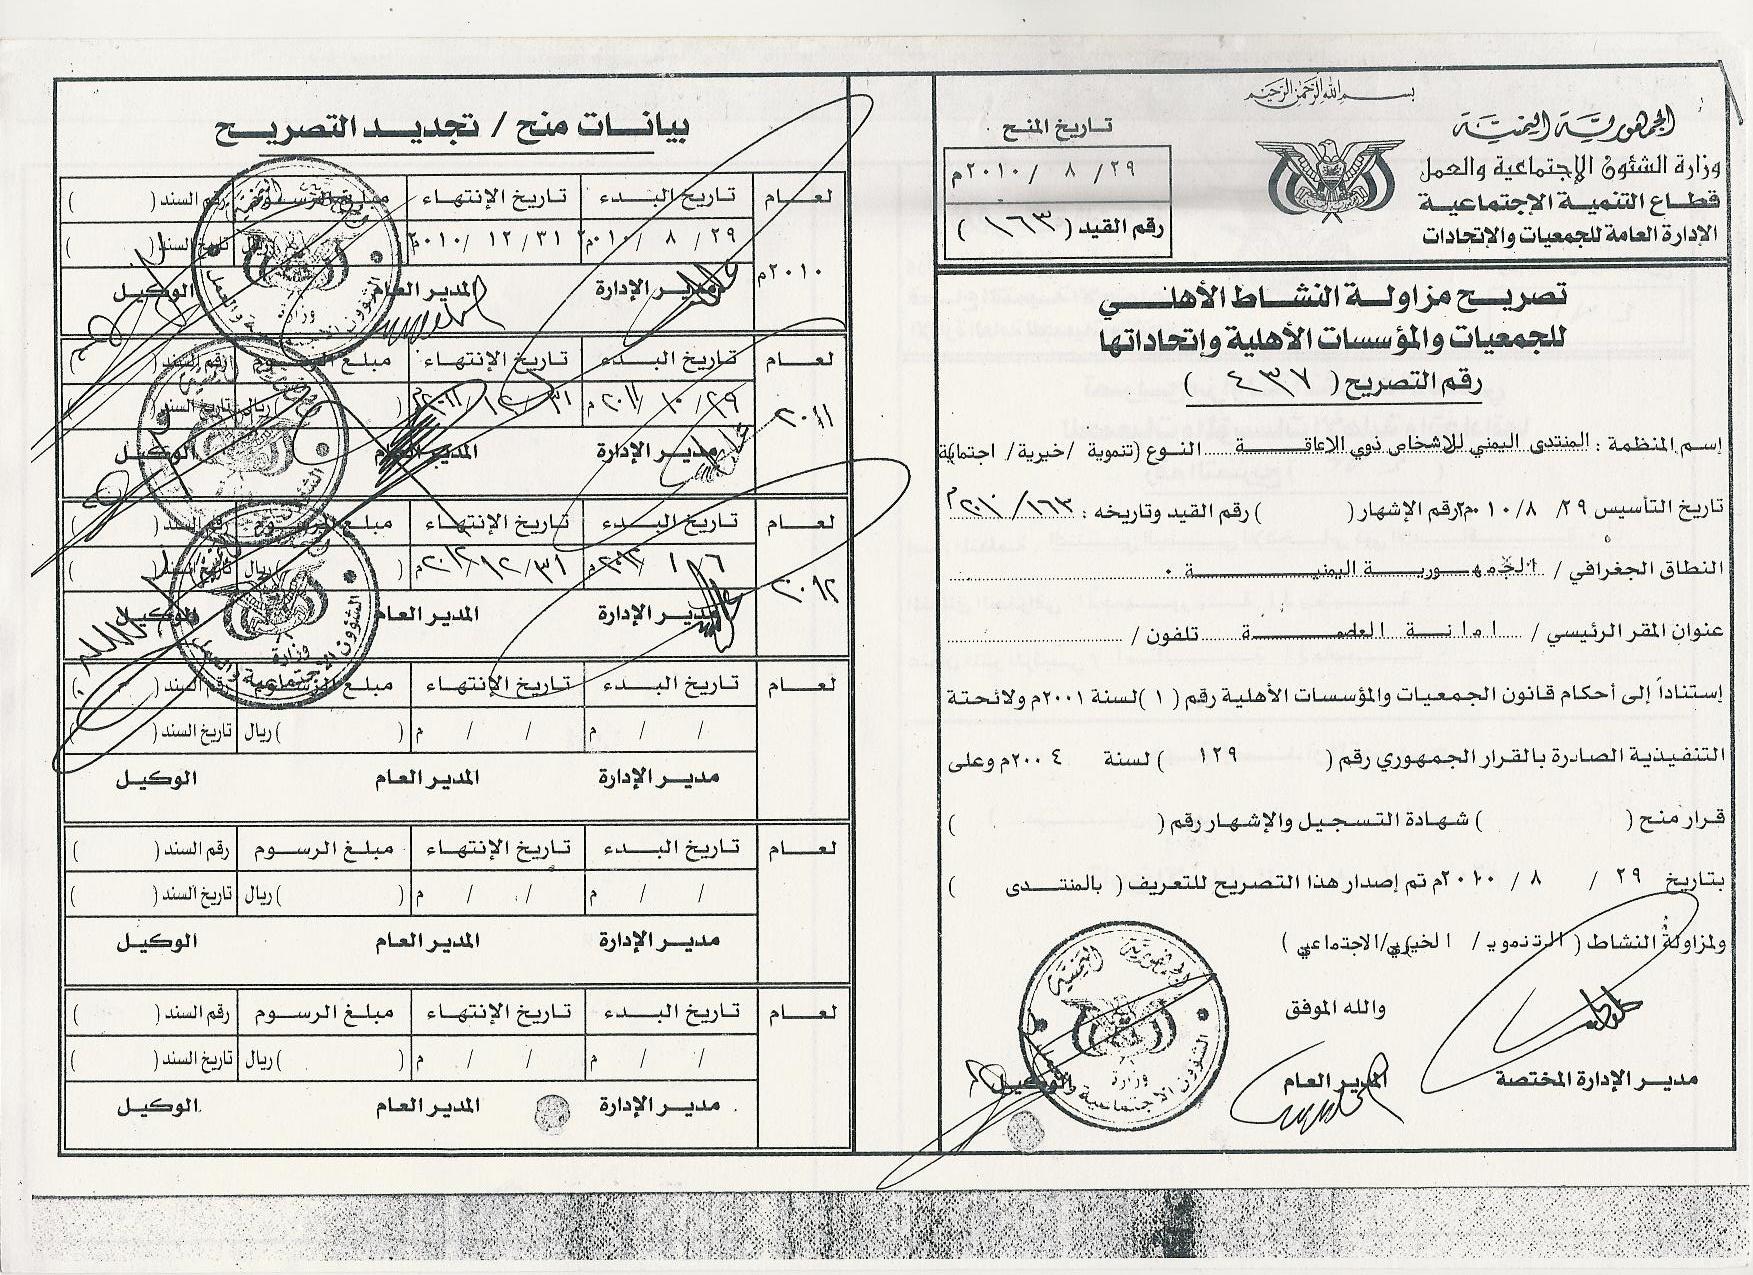 بسم الله الرحمن الرحيم
الجمهورية اليمنية
وزارة الشئون الإجتماعية والعمل
قطاع التنمية الإجتماعية
الإدارة العامة للجمعيات والإتحادات
تاريخ المنح
٢٩ / ٨ / ٢٠١٠م
رقم القيد ( ١٦٣ )
تصريح مزاولة النشاط الأهلي
للجمعيات والمؤسسات الأهلية وإتحاداتها
رقم التصريح ( ٤٣٧ )
إسم المنظمة : المنتدى اليمني للاشخاص ذوي الاعاقة النوع (تنموية / خيرية / اجتماعية
تاريخ التأسيس ٢٩ / ٨ / ٢٠١٠م رقم الإشهار ( ) رقم القيد وتاريخه : ١٦٣ / ٢٠١٠م
النطاق الجغرافي / الجمهورية اليمنية ٠
عنوان المقر الرئيسي / امانة العاصمة تلفون /
إستناداً إلى أحكام قانون الجمعيات والمؤسسات الأهلية رقم ( ١ ) لسنة ٢٠٠١م ولائحتة
التنفيذية الصادرة بالقرار الجمهوري رقم ( ١٢٩ ) لسنة ٢٠٠٤م وعلى
قرار منح ( ) شهادة التسجيل والإشهار رقم ( )
بتاريخ ٢٩ / ٨ / ٢٠١٠م تم إصدار هذا التصريح للتعريف ( بالمنتدى )
ولمزاولة النشاط ( التنموي / الخيري / الاجتماعي )
والله الموفق
مدير الإدارة المختصة المدير العام الوكيل
الجمهورية اليمنية
وزارة
الشؤون الاجتماعية والعمل
بيانات منح / تجديد التصريح
لعام تاريخ البدء تاريخ الإنتهاء مبلغ الرسوم رقم السند ( )
٢٠١٠م ٢٩ / ٨ / ٢٠١٠م ٣١ / ١٢ / ٢٠١٠م ريال تاريخ السند
مدير الإدارة المدير العام الوكيل
لعام تاريخ البدء تاريخ الإنتهاء مبلغ الرسوم رقم السند ( )
٢٠١١ ٢٩ / ١٠ / ٢٠١١م ٣١ / ١٢ / ٢٠١١م ( ) ريال تاريخ السند
مدير الإدارة المدير العام الوكيل
لعام تاريخ البدء تاريخ الإنتهاء مبلغ الرسوم رقم السند ( )
٢٠١٢ ٣١ / ١٢ / ٢٠١٢م ( ) ريال تاريخ السند ( )
مدير الإدارة المدير العام الوكيل
لعام تاريخ البدء تاريخ الإنتهاء مبلغ الرسوم رقم السند ( )
/ / م / / م ( ) ريال تاريخ السند ( )
مدير الإدارة المدير العام الوكيل
لعام تاريخ البدء تاريخ الإنتهاء مبلغ الرسوم رقم السند ( )
/ / م / / م ( ) ريال تاريخ السند ( )
مدير الإدارة المدير العام الوكيل
لعام تاريخ البدء تاريخ الإنتهاء مبلغ الرسوم رقم السند ( )
/ / م / / م ( ) ريال تاريخ السند ( )
مدير الإدارة المدير العام الوكيل